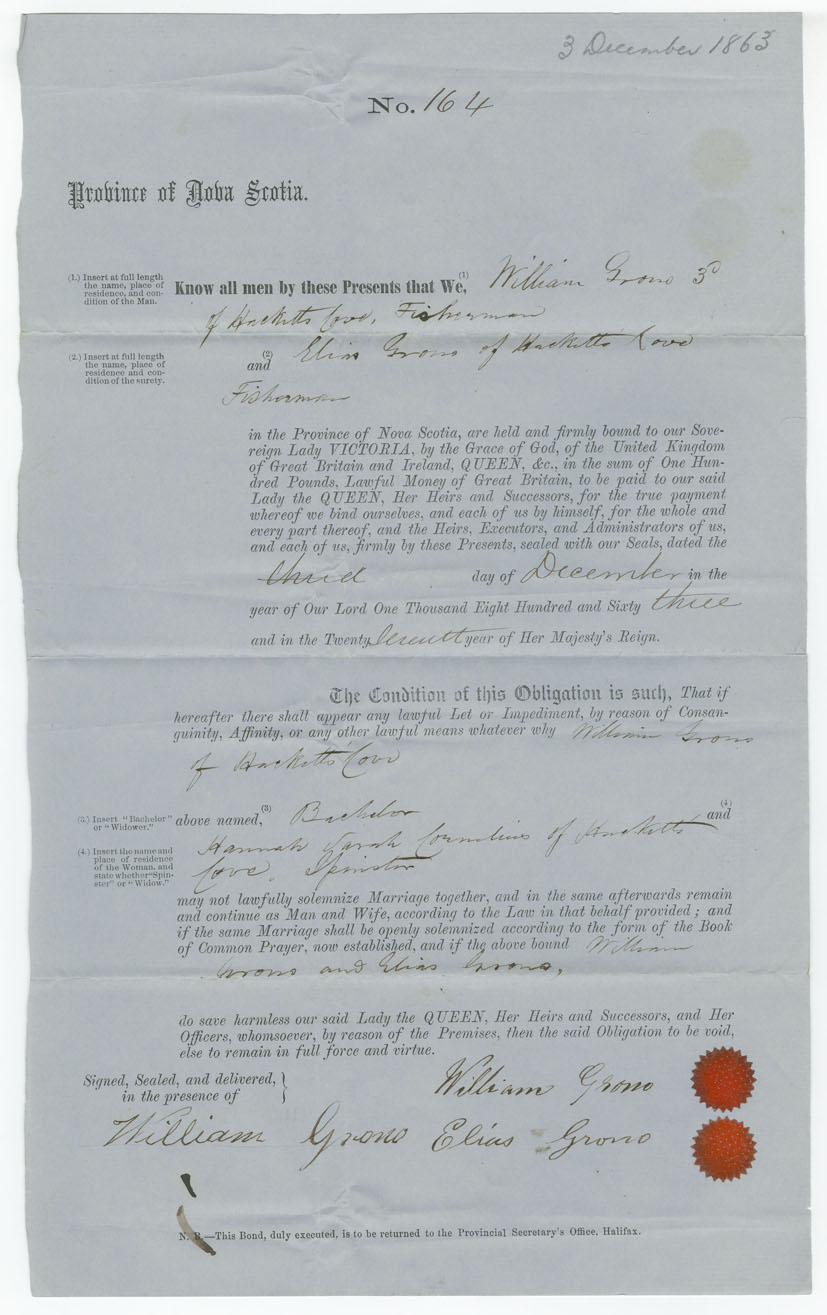 3 December 1863
No. 164
Province of Nova Scotia.
(1.) Insert at full length
the name, place of
residence, and con-
dition of the Man.
Know all men by these Presents that We, (1) William Grono 3d
of Hacketts Cove, Fisherman
(2.) Insert at full length
the name, place of
residence and con-
dition of the surety.
and (2) Elias Grono of Hacketts Cove
Fisherman
in the Province of Nova Scotia, are held and firmly bound to our Sove-
reign Lady VICTORIA, by the Grace of God, of the United Kingdom
of Great Britain and Ireland, QUEEN, &c., in the sum of One Hun-
dred Pounds, Lawful Money of Great Britain, to be paid to our said
Lady the QUEEN, Her Heirs and Successors, for the true payment
whereof we bind ourselves, and each of us by himself, for the whole and
every part thereof, and the Heirs, Executors, and Administrators of us,
and each of us, firmly by these Presents, sealed with our Seals, dated the
third day of December in the
year of Our Lord One Thousand Eight Hundred and Sixty three
and in the Twenty seventh year of Her Majesty's Reign.
The Condition of this Obligation is such, That if
hereafter there shall appear any lawful Let or Impediment, by reason of Consan-
guinity, Affinity, or any other lawful means whatever why William Grono
of Hacketts Cove
(3.) Insert "Bachelor"
or "Widower."
above named, (3) Bachelor (4) and
(4.) Insert the name and
place of residence
of the Woman, and
state whether "Spin-
ster" or "Widow."
Hannah Sarah Cornelius of Hacketts
Cove, Spinster
may not lawfully solemnize Marriage together, and in the same afterwards remain
and continue as Man and Wife, according to the Law in that behalf provided; and
if the same Marriage shall be openly solemnized according to the form of the Book
of Common Prayer, now established, and if the above bound William
Grono and Elias Grono,
do save harmless our said Lady the QUEEN, Her Heirs and Successors, and Her
Officers, whomsoever, by reason of the Premises, then the said Obligation to be void,
else to remain in full force and virtue.
Signed, Sealed, and delivered,
in the presence of
William Grono
William Grono Elias Grono
N. B.—This Bond, duly executed, is to be returned to the Provincial Secretary's Office, Halifax.